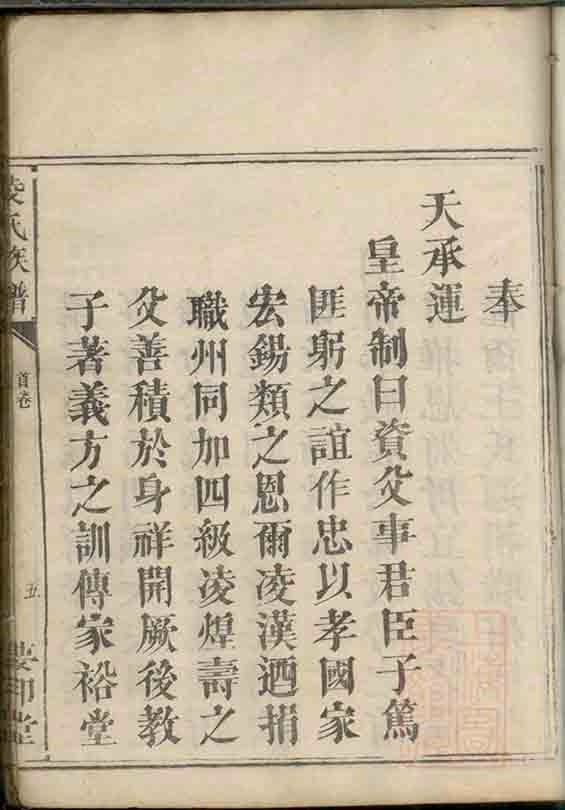 奉
天承運
皇帝制曰資父事君臣子篤
匪躬之誼作忠以孝國家
宏錫類之恩爾凌漢迺捐
職州同加四級凌煌壽之
父善積於身祥開厥後教
子著義方之訓傳家裕堂
凌氏族譜
首卷
五